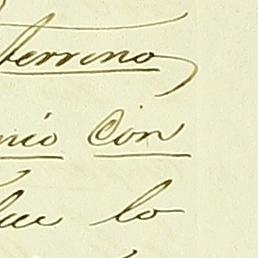 terreno
nio Con
que lo